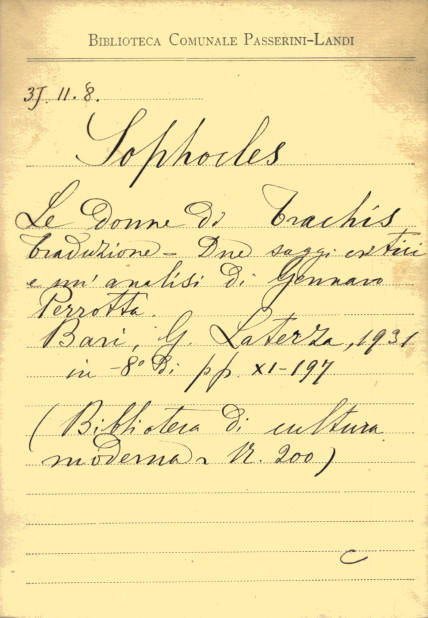 BIBLIOTECA COMUNALE PASSERINI-LANDI
3J. 11. 8.
Sophocles
Le donne di Trachis
Traduzione - Due saggi critici
e un'analisi di Gennaro
Perrotta.
Bari, G. Laterza, 1931
in -8° di pp. XI-197
(Biblioteca di cultura
moderna N. 200)
C